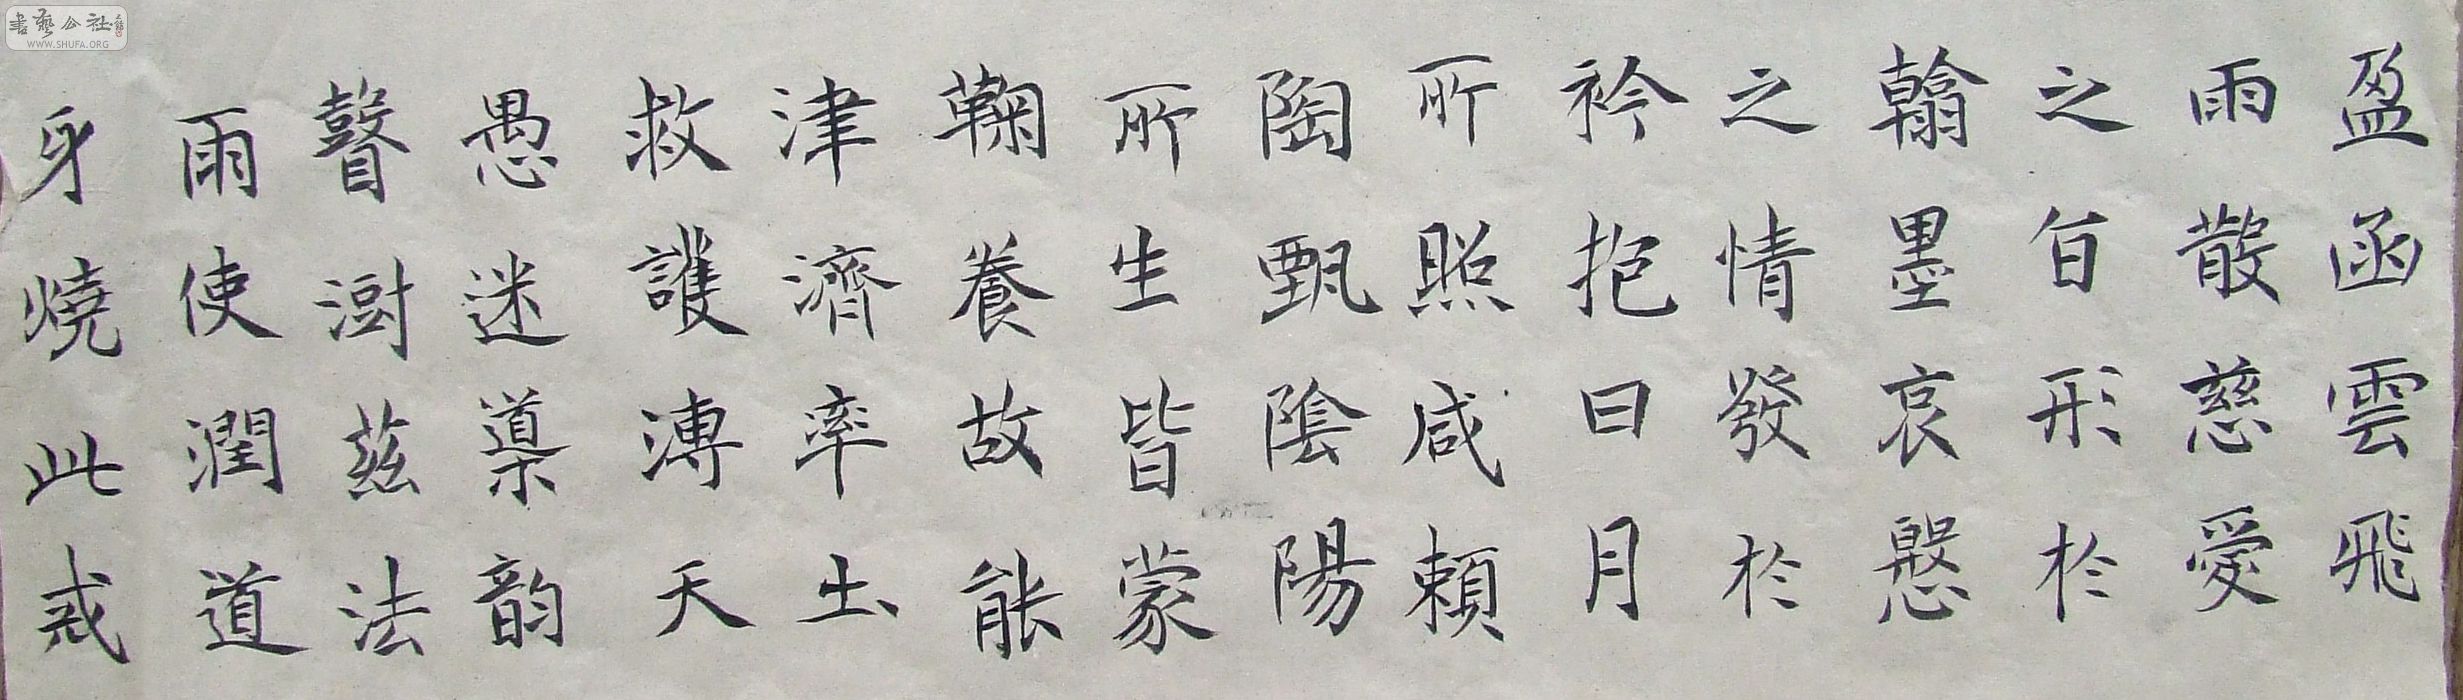 盈函雲飛
雨散慈愛
之旨形於
翰墨哀慇
之情發於
衿抱日月
所照咸賴
陶甄陰陽
所生皆蒙
鞠養故能
津濟率土
救護溥天
愚迷導韵
瞽澍茲法
雨使潤道
身燒此戒
書藝公社
WWW.SHUFA.ORG